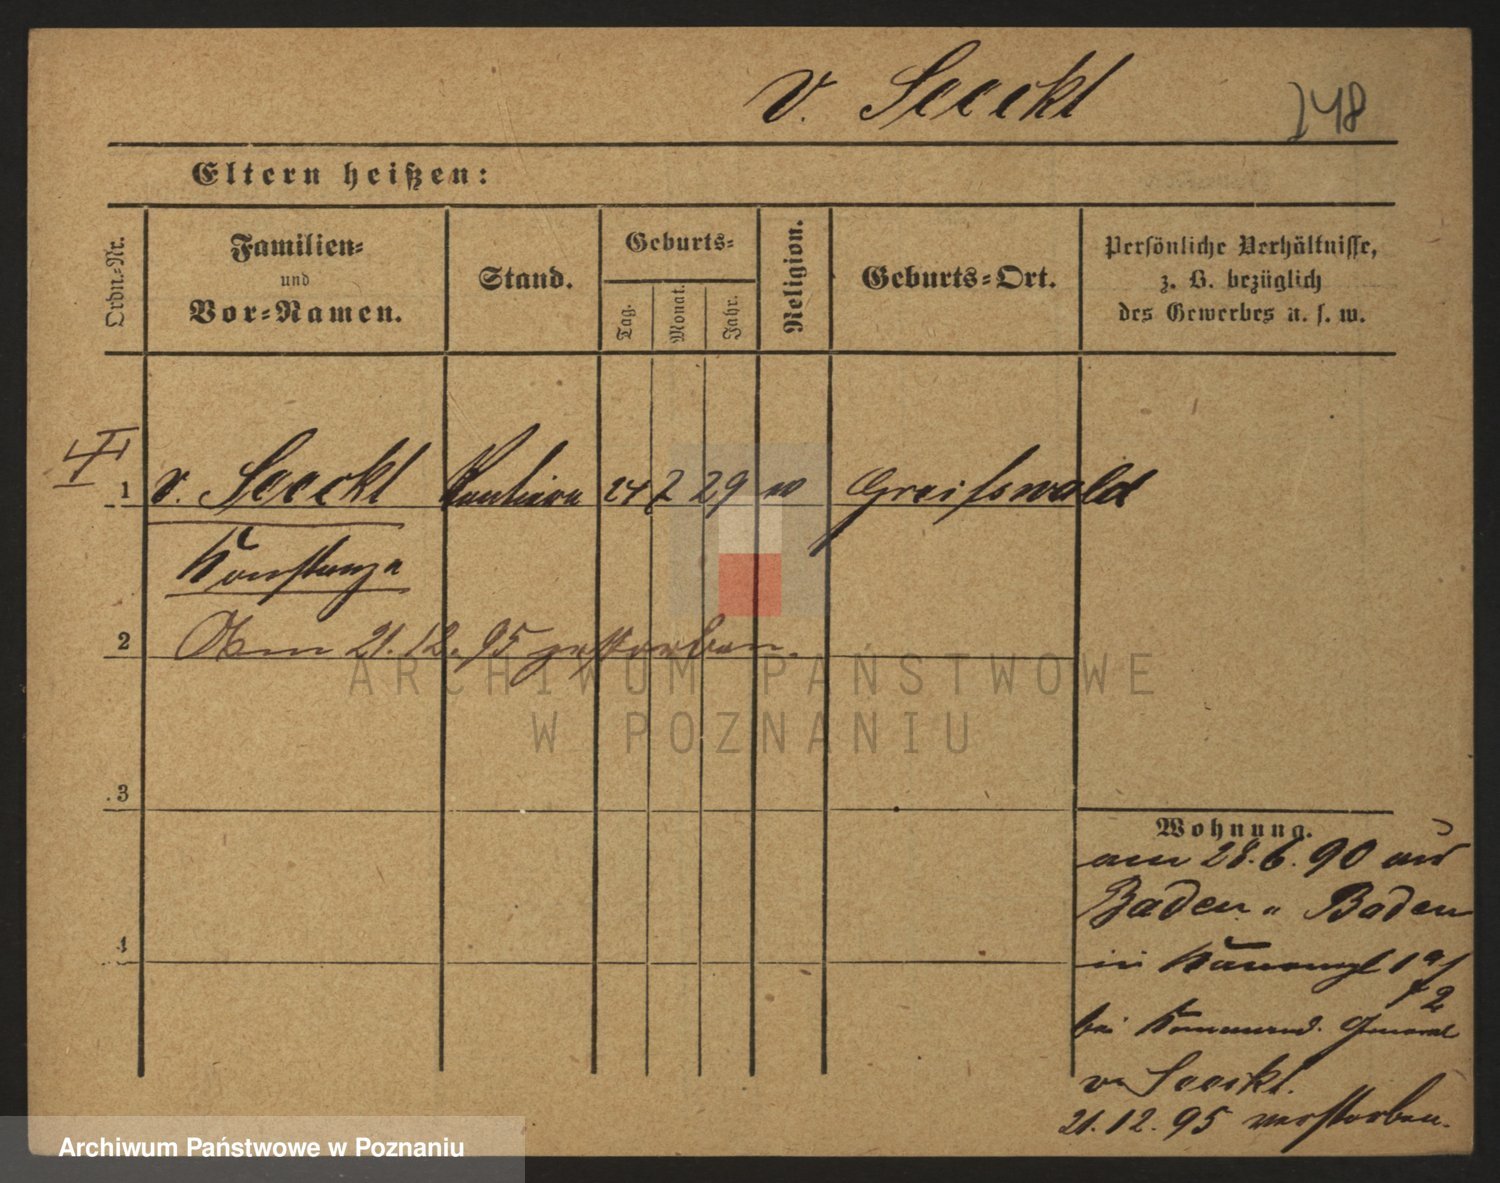 v. Seeckt 248
Eltern heißen:
Ordn.-Nr.
Familien-
und
Vor-Namen.
Stand.
Geburts-
Tag.
Monat.
Jahr.
Religion.
Geburts-Ort.
Persönliche Verhältnisse,
z. B. bezüglich
des Gewerbes u. s. w.
1 v. Seeckt Rentiere 24 7 29 Greifswald
Konstanze
2 Am 21.12.95 gestorben.
3
4
Wohnung.
am 28.6.90 aus
Baden-Baden
in 1
2
bei Kommand. General
v. Seeckt.
21.12.95 verstorben.
ARCHIWUM PAŃSTWOWE
W POZNANIU
Archiwum Państwowe w Poznaniu